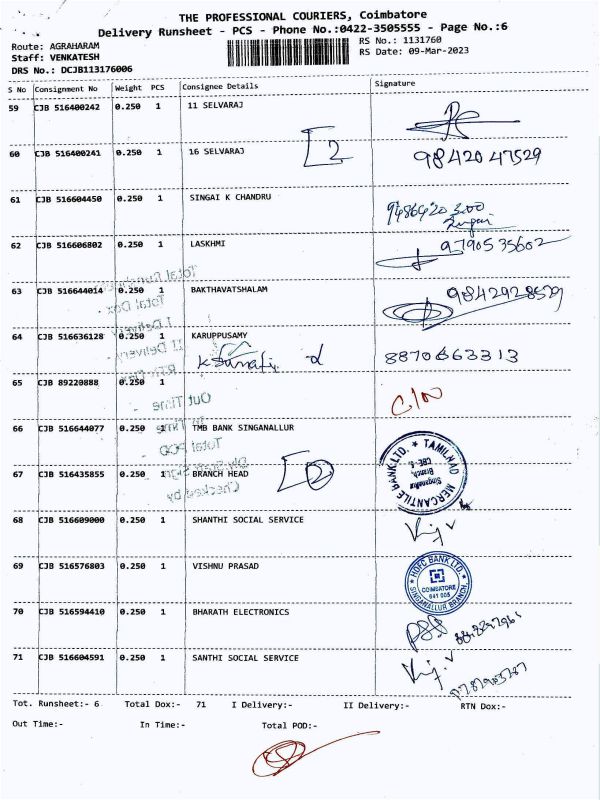 THE PROFESSIONAL COURIERS, Coimbatore
Delivery Runsheet - PCS - Phone No.:0422-3505555 - Page No.:6
Route: AGRAHARAM
RS No.: 1131760
Staff: VENKATESH
RS Date: 09-Mar-2023
DRS No.: DCJB113176006
S No Consignment No Weight PCS Consignee Details Signature
59 CJB 516400242 0.250 1 11 SELVARAJ
60 CJB 516400241 0.250 1 16 SELVARAJ 2 9842047529
61 CJB 516604450 0.250 1 SINGAI K CHANDRU
62 CJB 516606802 0.250 1 LASKHMI 9790535602
63 CJB 516644014 0.250 1 BAKTHAVATSHALAM 9842928529
64 CJB 516636128 0.250 1 KARUPPUSAMY 8870663313
65 CJB 89220888 0.250 1
66 CJB 516644077 0.250 1 TMB BANK SINGANALLUR
TAMILNAD MERCANTILE BANK LTD.
Singanallur
Branch,
CBE-5.
67 CJB 516435855 0.250 1 BRANCH HEAD 2
68 CJB 516609000 0.250 1 SHANTHI SOCIAL SERVICE
69 CJB 516576803 0.250 1 VISHNU PRASAD
HDFC BANK LTD.
COIMBATORE
641 005
SINGANALLUR BRANCH
70 CJB 516594410 0.250 1 BHARATH ELECTRONICS
71 CJB 516604591 0.250 1 SANTHI SOCIAL SERVICE
Tot. Runsheet:- 6 Total Dox:- 71 I Delivery:- II Delivery:- RTN Dox:-
Out Time:- In Time:- Total POD:-